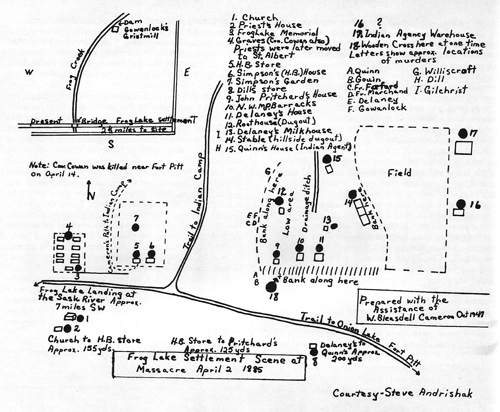 Dam
Gowanlock's
Gristmill
Frog Creek
W
E
Present
Bridge
Frog Lake Settlement
2¾ miles to site
S
Note: Con. Cowan was killed near Fort Pitt
on April 14.
N
1. Church
2. Priest's House
3. Frog Lake Memorial
4. Graves (Con. Cowan also)
Priests were later moved
to St. Albert
5. H.B. Store
6. Simpson's (H.B.) House
7. Simpson's Garden
8. Dill's Store
9. John Pritchard's House
10. N.W.M.P. Barracks
11. Delaney's House
12. Roothouse (Dugout)
13. Delaney's Milkhouse
14. Stable (hillside dugout)
15. Quinn's House (Indian Agent)
16 ?
17. Indian Agency Warehouse
18. Wooden Cross here at one time
Letters show approx. locations
of murders
A. Quinn
B. Gouin
C. Fr. Fafard
D. Fr. Marchand
E. Delaney
F. Gowanlock
G. Williscraft
H. Dill
I. Gilchrist
I
H
Trail to Indian Camp
Cameron's Path to Indian Camp
4
3
7
5
6
G
Bank along here
12
Low area
Drainage ditch
15
13
14
E F
C D
9
10
11
A
B
18
Bank along here
Field
17
16
Frog Lake Landing at
the Sask River Approx.
7 miles SW
1
2
Church to H.B. store
Approx. 155 yds
H.B. Store to Pritchard's
Approx. 125 yds
Trail to Onion Lake
Fort Pitt
Delaney's to
Quinn's Approx
200 yds
8
Prepared with the
Assistance of
W. Bleasdell Cameron Oct 1947
Frog Lake Settlement Scene at
Massacre April 2 1885
Courtesy-Steve Andrishak